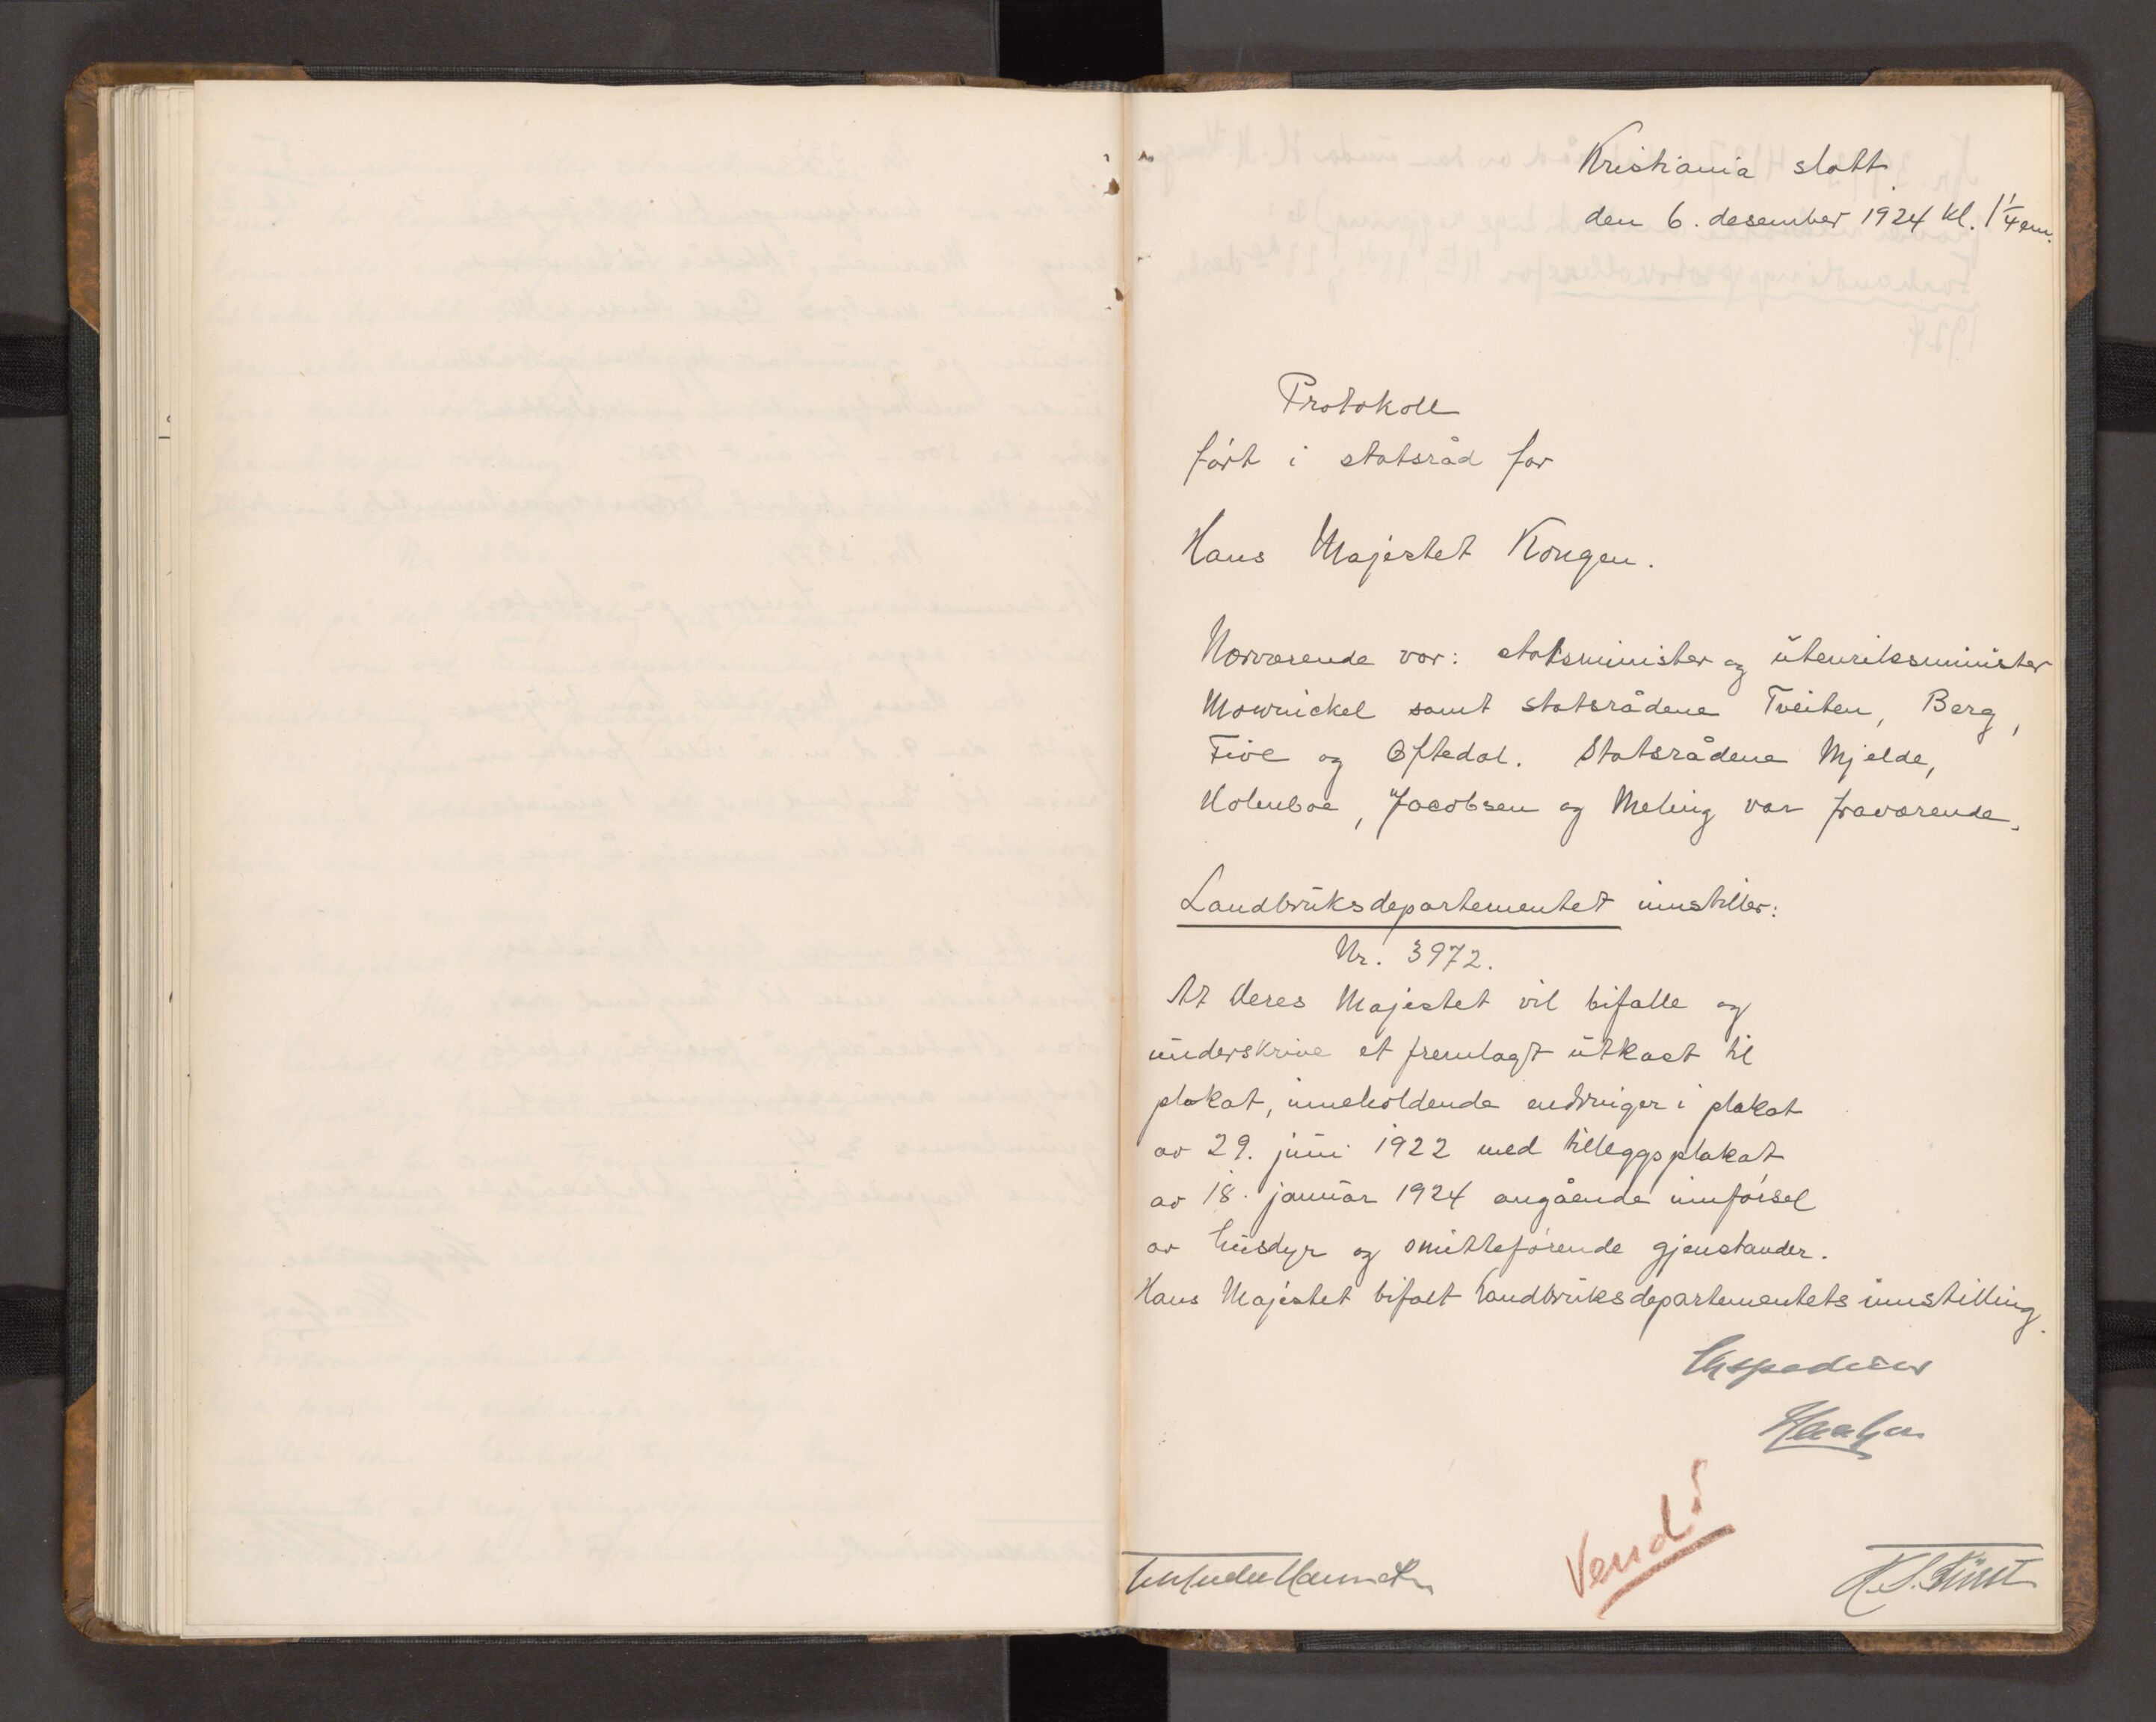 Kristiania slott
den 6. desember 1924 kl. 1 1/4 em.
Protokoll
ført i statsråd for
Hans Majestet Kongen.
Nærværende var: statsminister og utenriksminister
Mowinckel samt statsrådene Tveiten, Berg,
Five og Oftedal. Statsrådene Mjelde,
Holmboe, Jacobsen og Meling var fraværende.
Landbruksdepartementet innstiller:
Nr. 3972.
At Deres Majestet vil bifalle og
underskrive et fremlagt utkast til
plakat, inneholdende endringer i plakat
av 29. juni 1922 med tilleggsplakat
av 18. januar 1924 angående innførsel
av husdyr og smitteførende gjenstander.
Hans Majestet bifalt Landbruksdepartementets innstilling.
Haakon
Vend!